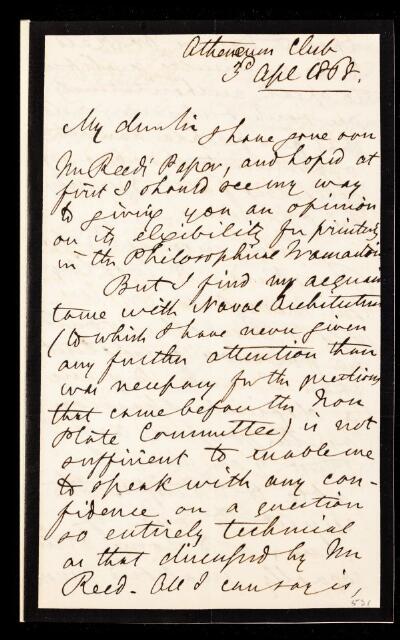 Athenæum Club
3d Apl 1868.
My dear Sir I have gone over
Mr Reed's Paper, and hoped at
first I should see my way
to giving you an opinion
on its eligibility for printing
in the Philosophical Transactions
But I find my acquain
tance with Naval Architecture
(to which I have never given
any further attention than
was necessary for the questions
that came before the Iron
Plate Committee) is not
sufficient to enable me
to speak with any con-
fidence on a question
so entirely technical
as that discussed by Mr
Reed. All I can say is,
531